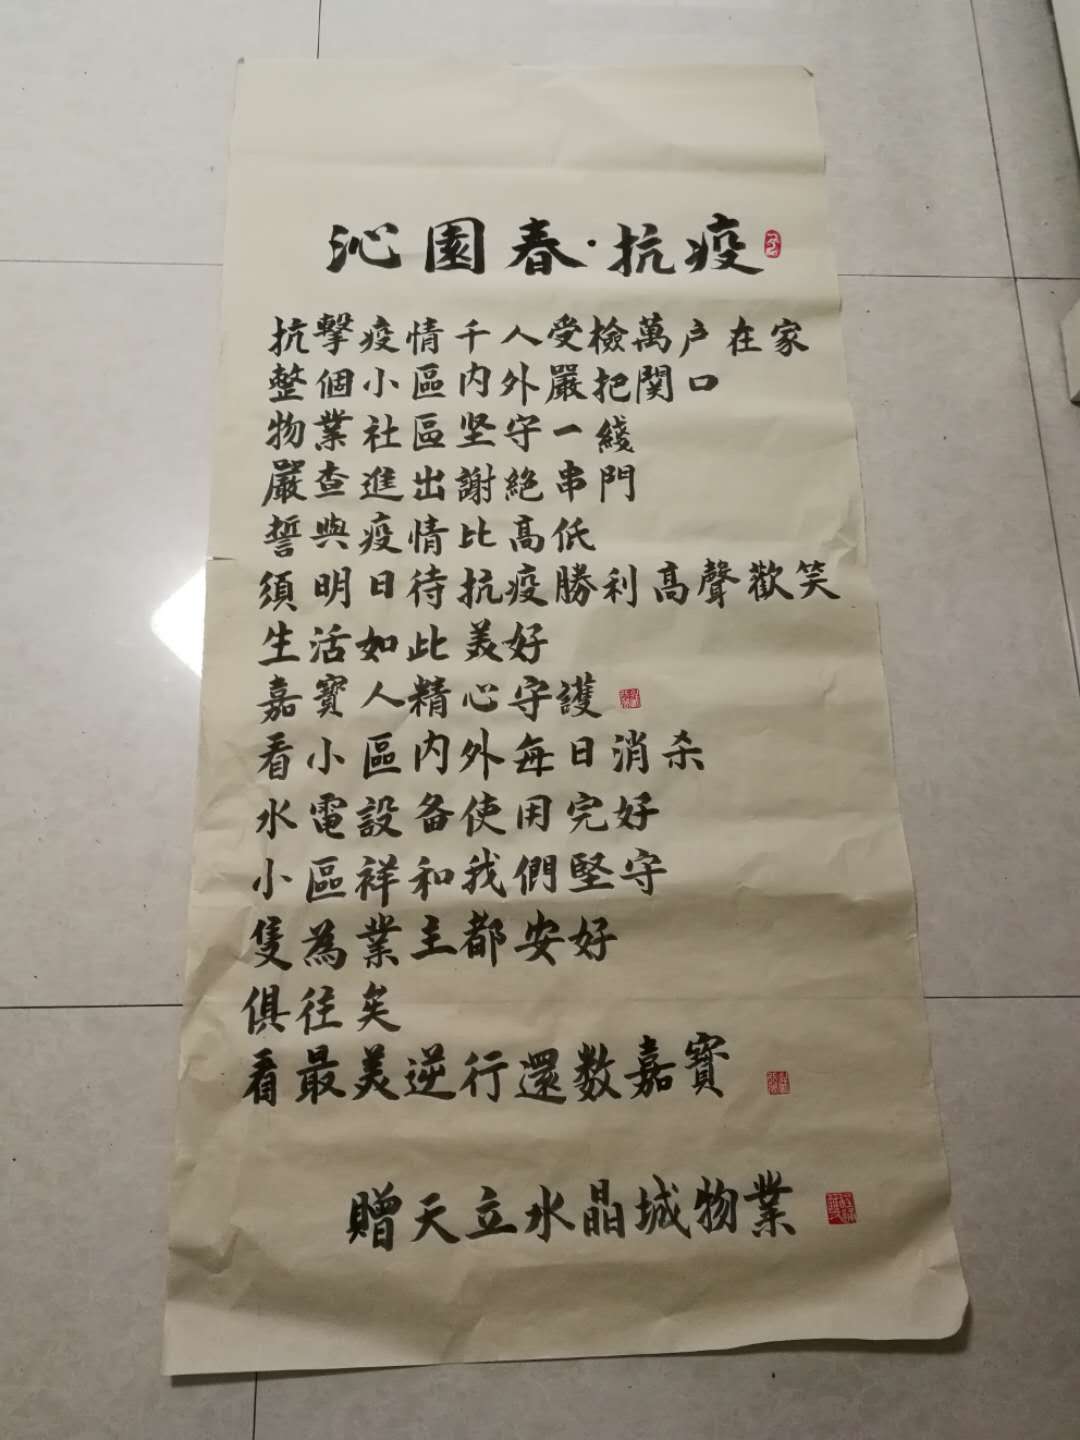 沁園春·抗疫
抗擊疫情千人受檢萬户在家
整個小區内外嚴把関口
物業社區坚守一綫
嚴查進出謝絶串門
誓與疫情比高低
須明日待抗疫勝利高聲歡笑
生活如此美好
嘉寳人精心守護
看小區内外每日消杀
水電設备使用完好
小區祥和我們堅守
隻為業主都安好
俱往矣
看最美逆行還数嘉寳
贈天立水晶城物業